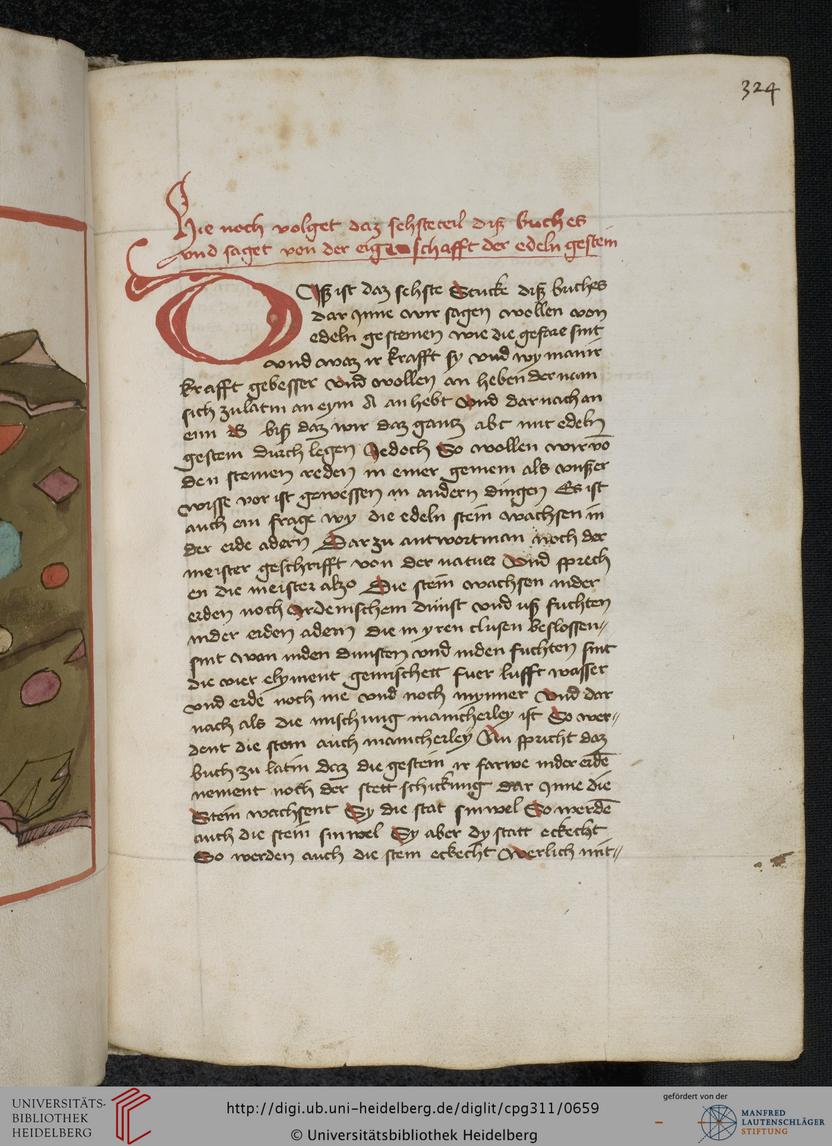 324
Hie noch volget daz sehsteteil diß buches
vnd saget von der eigenschafft der edeln gestein
Diß ist daz sehste Stucke diß buches
dar Inne wir sagen wollen von
edeln gesteinen wie die gefare sint
vnd waz ir krafft sy vnd wy man ir
krafft gebesser vnd wollen an heben der nam
sich zu latin an eym A an hebt vnd dar nach an
eim B biß daz wir daz gantz abc mit edeln
gestein durch legen Iedoch So wollen wir vō
den steinen reden in einer gemein als vnßer
wisse vor ist gewessen in andern dingen Es ist
auch ein frage wy die edeln stein wachsen in
der erde adern Dar zu antwort man noch der
meister geschrifft von der natuer Vnd sprech
en die meister alzo Die stein wachsen in der
erden noch Irdenischem dunst vnd uß fuchten
in der erden adern die in yren clusen beslossen
sint wan in den dunsten vnd in den fuchten sint
die vier elyment gemischett fuer lufft wasser
vnd erde noch me vnd noch mynner vnd dar
nach als die mischung manicherley ist So wer
dent die stein auch manicherley An spricht daz
buch zu latin daz die gestein ir farwe in der erdē
nement noch der stett schickung dar Inne die
Stein wachsent Sy die stat sinwel So werdē
auch die stein sinwel Sy aber dy statt eckecht
So werden auch die stein eckecht Werlich mit
UNIVERSITÄTS-
BIBLIOTHEK
HEIDELBERG
http://digi.ub.uni-heidelberg.de/diglit/cpg311/0659
© Universitätsbibliothek Heidelberg
gefördert von der
MANFRED
LAUTENSCHLÄGER
STIFTUNG